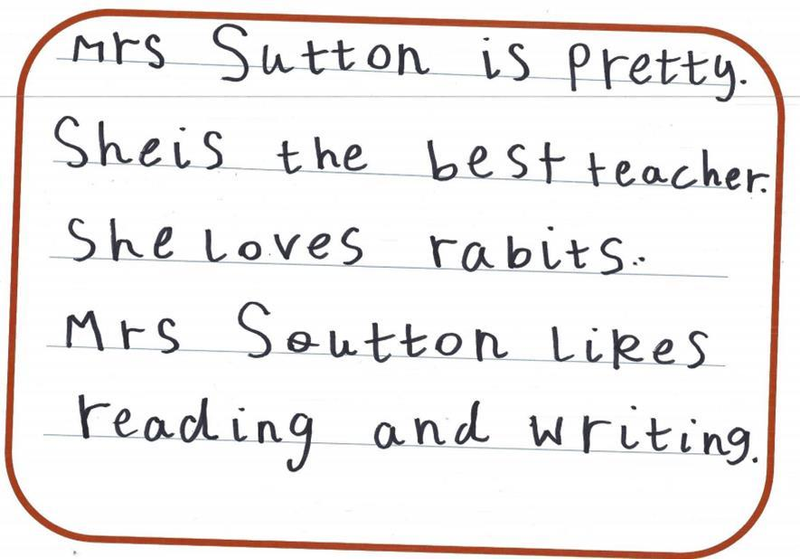 Mrs Sutton is pretty.
She is the best teacher.
She loves rabits.
Mrs Soutton likes
reading and writing.